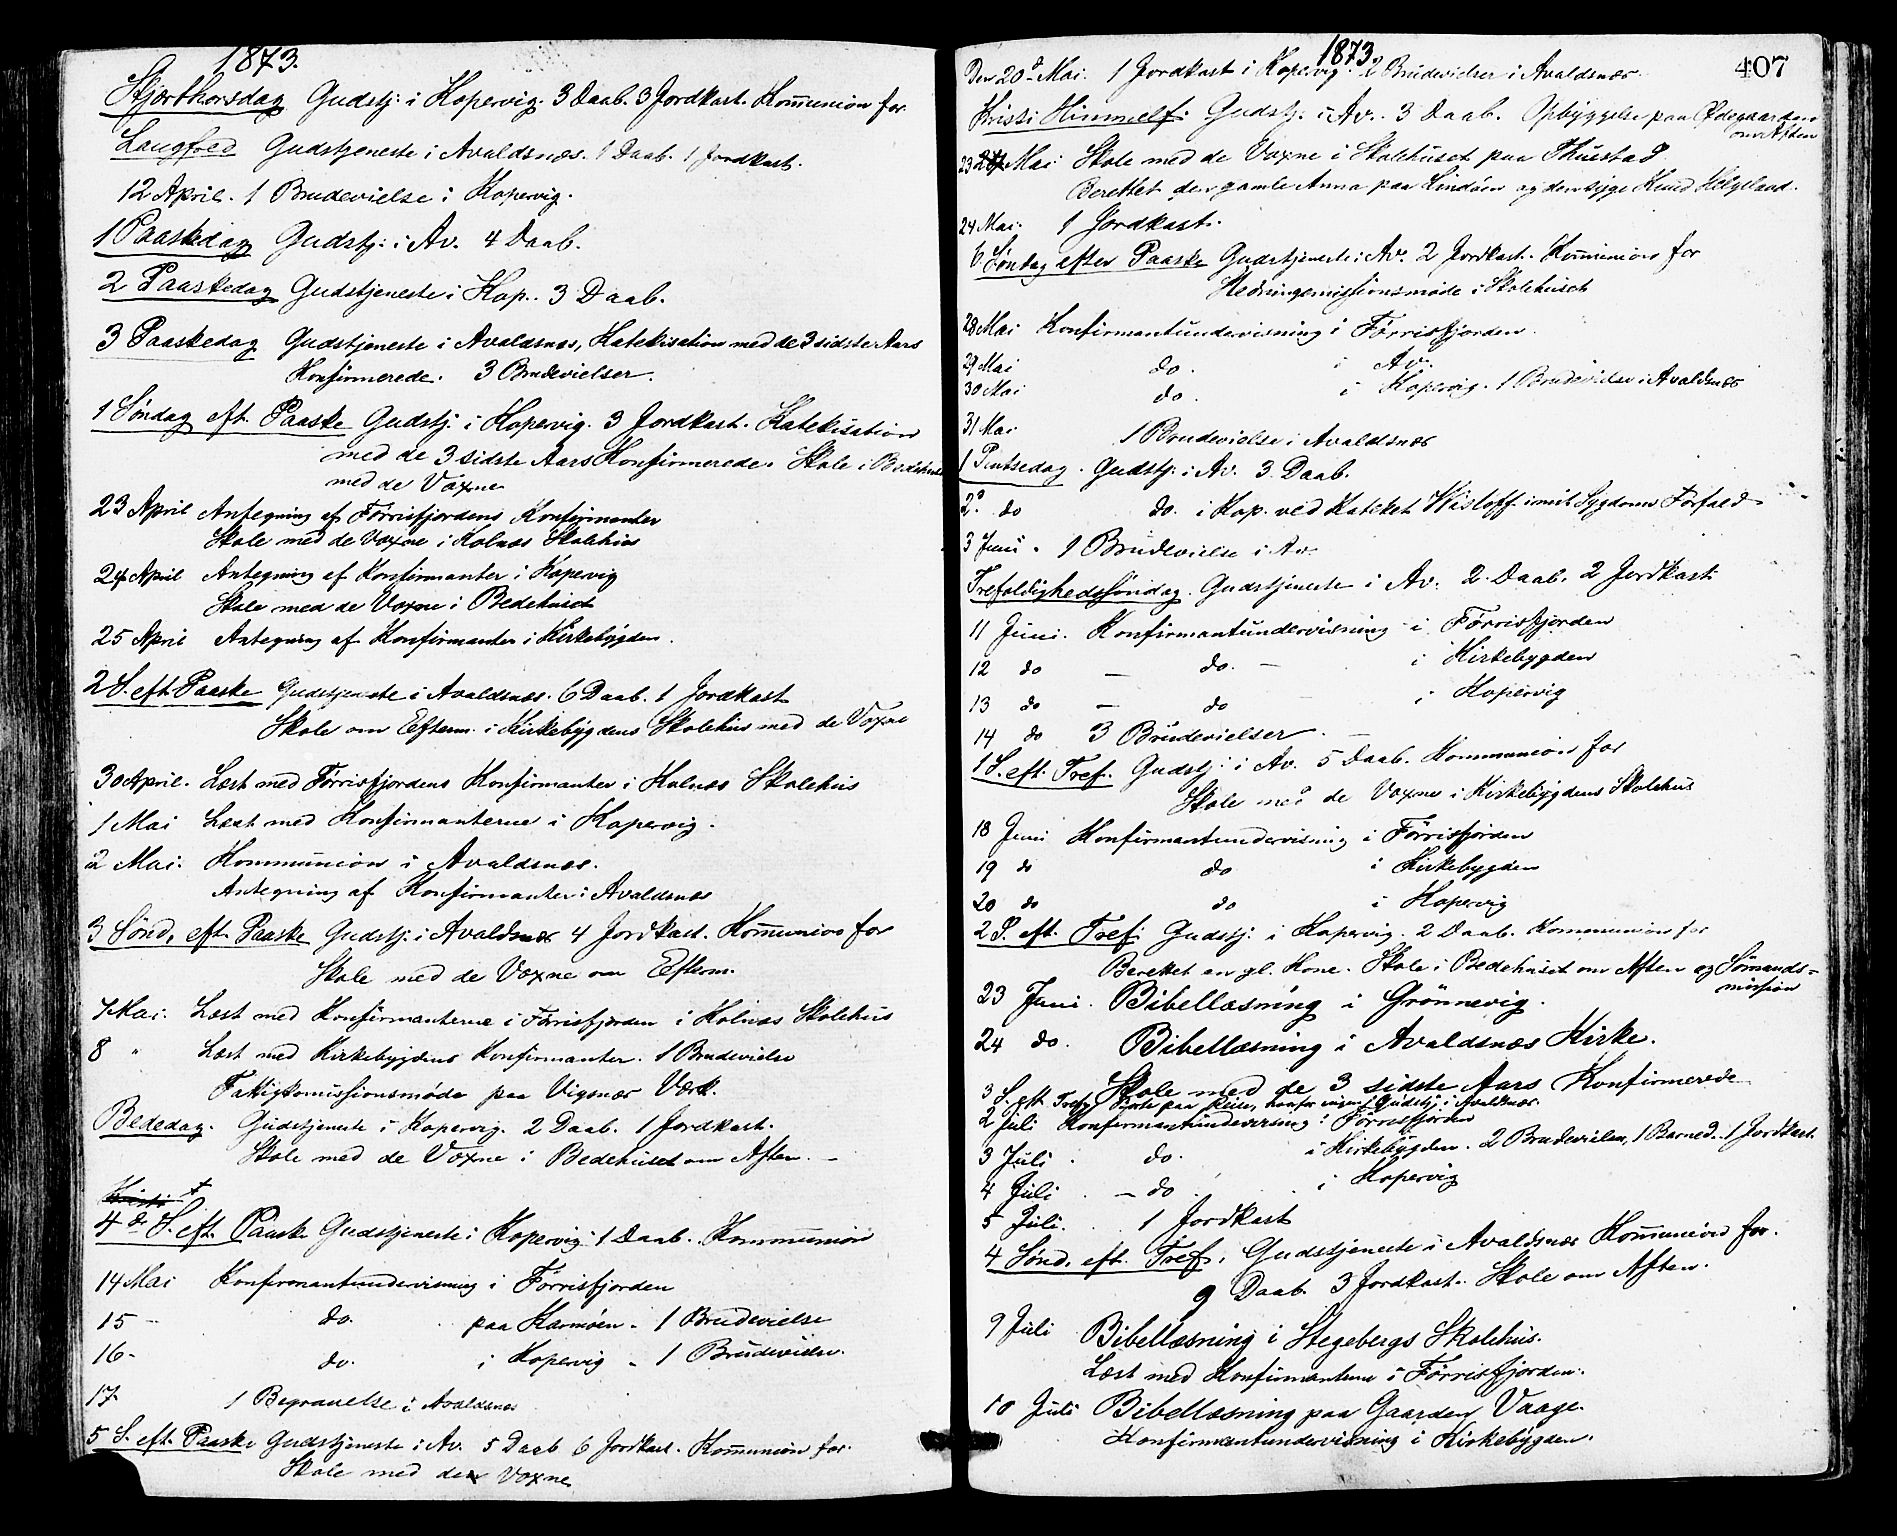 1873.
Skjærthorsdag Gudstj. i Kopervig. 3 Daab. 3 Jordkast. Kommunion for
Langfred Gudstjeneste i Avaldsnæs. 1 Daab. 1 Jordkast.
12 April. 1 Brudevielse i Kopervig.
1 Paaskedag Gudstj. i Av. 4 Daab.
2 Paaskedag Gudstjeneste i Kop. 3 Daab.
3 Paaskedag Gudstjeneste i Avaldsnæs, Katekisation med de 3 sidste Aars
Konfirmerede. 3 Brudevielser.
1 Søndag eft. Paaske Gudstj. i Kopervig. 3 Jordkast. Katekisation
med de 3 sidste Aars Konfirmerede. Skole i Bedehuset
med de Voxne
23 April Antegning af Førrisfjordens Konfirmanter
Skole med de Voxne i Kolnæs Skolehus
24 April Antegning af Konfirmanter i Kopervig
Skole med de Voxne i Bedehuset
25 April Antegning af Konfirmanter i Kirkebygden.
2 S. eft. Paaske Gudstjeneste i Avaldsnæs. 6 Daab. 1 Jordkast
Skole om Efterm. i Kirkebygdens Skolehus med de Voxne
30 April. Læst med Førrisfjordens Konfirmanter i Kolnæs Skolehus
1 Mai Læst med Konfirmanterne i Kopervig.
2 Mai. Kommunion i Avaldsnæs.
Antegning af Konfirmanter i Avaldsnæs
3 Sønd. eft. Paaske Gudstj. i Avaldsnæs 4 Jordkast. Kommunion for
Skole med de Voxne om Efterm.
7 Mai. Læst med Konfirmanterne i Førrisfjorden i Kolnæs Skolehus
8 " Læst med Kirkebygdens Konfirmanter. 1 Brudevielse
Fattigkommissionsmøde paa Vigsnæs Værk.
Bededag. Gudstjeneste i Kopervig. 2 Daab. 1 Jordkast.
Skole med de Voxne i Bedehuset om Aften. –
Kristi
4de S. eft. Paaske Gudstjeneste i Kopervig 1 Daab. Kommunion
14 Mai Konfirmantundervisning i Førrisfjorden
15 – do. paa Karmøen. 1 Brudevielse
16 – do. i Kopervig – 1 Brudevielse.
17. 1 Begravelse i Avaldsnæs
5 S. eft. Paaske Gudstjeneste i Av. 5 Daab 6 Jordkast. Kommunion for.
Skole med de Voxne
1873.
407
Den 20de Mai. 1 Jordkast i Kopervig. 2 Brudevielser i Avaldsnæs.
Kristi Himmelf. Gudstj. i Av. 3 Daab. Opbyggelse paa Ødegaarden
om Aften
23 Mai Skole med de Voxne i Skolehuset paa Thuestad
Berettet den gamle Anna paa Lindøen og den syge Knud Helgeland.
24 Mai. 1 Jordkast.
6. Søndag efter Paaske Gudstjeneste i Av. 2 Jordkast. Kommunion for
Hedningemissionsmøde i Skolehuset
28 Mai Konfirmantundervisning i Førrisfjorden.
29 Mai do. i Av.
30 Mai do. i Kopervig. 1 Brudevielse i Avaldsnæs
31 Mai 1 Brudevielse i Avaldsnæs
1 Pintsedag. Gudstj. i Av. 3. Daab.
2d do do. i Kop. ved Kateket Wisløff i mit Sygdoms Forfald
3 Juni. 1 Brudevielse i Av.
Trefoldighedssøndag. Gudstjeneste i Av. 2. Daab. 2 Jordkast
11 Juni. Konfirmantundervisning i Førrisfjorden
12 do – do. – i Kirkebygden
13 do – do i Kopervig
14 do 3 Brudevielser. –
1 S. eft. Tref. Gudstj. i Av. 5 Daab. Kommunion for
Skole med de Voxne i Kirkebygdens Skolehus
18 Juni Konfirmantundervisning i Førrisfjorden
19 do do i Kirkebygden
20 do do i Kopervig
2 S. eft. Tref. Gudstj. i Kopervig. 2 Daab. Kommunion for
Berettet en gl. Kone. Skole i Bedehuset om Aften og Sømands=
mission
23 Juni. Bibellæsning i Grønnevig.
24 do. Bibellæsning i Avaldsnæs Kirke.
Skole med de 3 sidste Aars Konfirmerede
3 S. eft. Tref. paa Reise, hvorfor ingen Gudstj. i Avaldsnæs.
2 Juli Konfirmantundervisning i Førrisfjorden
3 Juli. do. i Kirkebygden. 2 Brudevielser, 1 Barned. 1 Jordkast.
4 Juli. – do i Kopervig
5 Juli. 1 Jordkast
4 Sønd. eft. Tref. Gudstjeneste i Avaldsnæs Kommunion for.
9 Daab. 3 Jordkast. Skole om Aften.
9 Juli Bibellæsning i Stegebergs Skolehus.
Læst med Konfirmanterne i Førrisfjorden.
10 Juli Bibellæsning paa Gaarden Vaage.
Konfirmantundervisning i Kirkebygden.